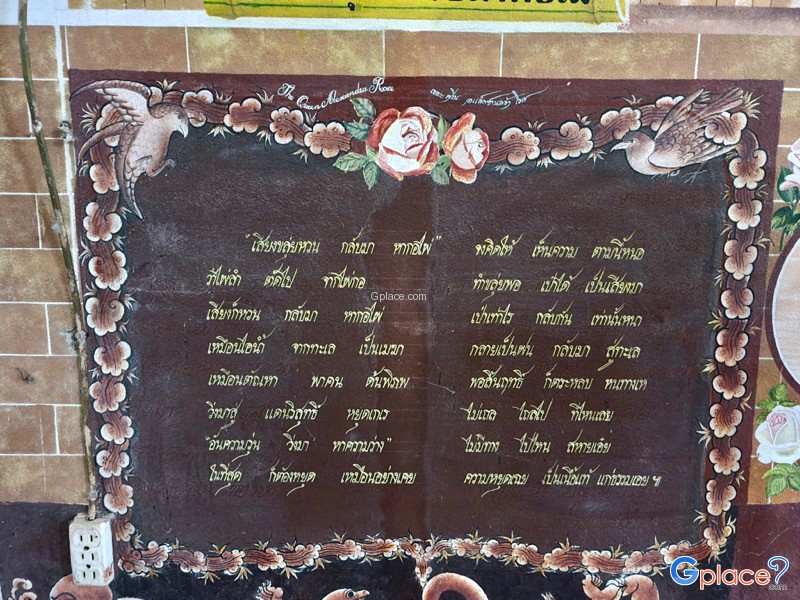 The Queen Alexandra Rose พระควีน อเล็กซานดร้า โรส
"เสียงขลุ่ยหวน กลับมา หากอไผ่" จงคิดให้ เห็นความ ตามนี้หนอ
ว่าไผ่ลำ ตัดไป จากไผ่กอ ทำขลุ่ยพอ เป่าได้ เป็นเสียงมา
เสียงก็หวน กลับมา หากอไผ่ เป่าเท่าไร กลับกัน เท่านั้นหนา
เหมือนไอน้ำ จากทะเล เป็นเมฆา กลายเป็นฝน กลับมา สู่ทะเล
เหมือนตัณหา พาคน ด้นพิภพ พอสิ้นฤทธิ์ ก็ตระหลบ หนทางเห
วิ่งมาสู่ แดนวิสุทธิ์ หยุดเกเร ไม่เถล ไถลไป ที่ไหนเลย
"อันความวุ่น วิ่งมา หาความว่าง" ไม่มีทาง ไปไหน สหายเอ๋ย
ในที่สุด ก็ต้องหยุด เหมือนอย่างเคย ความหยุดเฉย เป็นเนื้อแท้ แก่ธรรมเอย ฯ
Gplace.com
Gplace?
.com